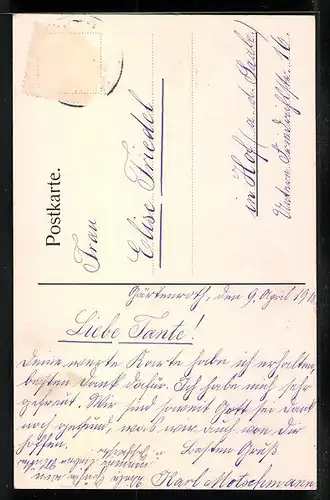 Postkarte.
Frau
Elise Friedel
in Hof (a. d. Saale)
Untere Friedrichstr. 16.
Gärtenroth, den 9. April 191
Liebe Tante!
Deine werte Karte habe ich erhalten,
besten Dank dafür. Ich habe mich sehr
gefreut. Wir sind soweit Gott sei dank
noch gesund, was wir auch von dir
hoffen.
Besten Gruß
Karl Motschmann